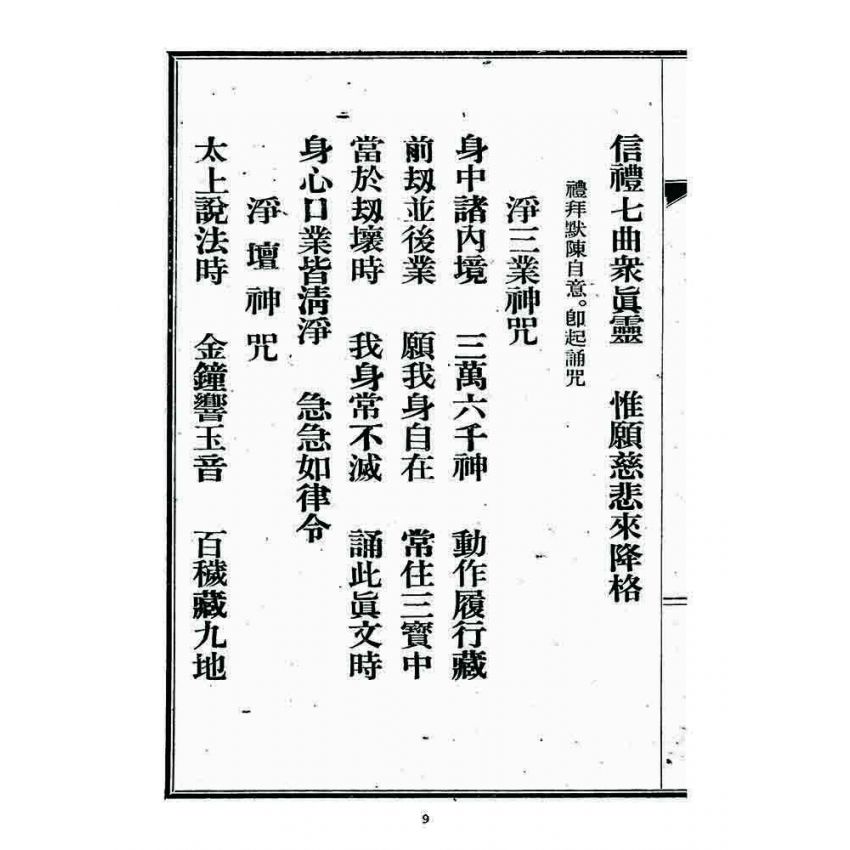 信禮七曲衆眞靈　惟願慈悲來降格
禮拜默陳自意。卽起誦咒
淨三業神咒
身中諸內境　三萬六千神　動作履行藏
前刼並後業　願我身自在　常住三寶中
當於刼壞時　我身常不滅　誦此眞文時
身心口業皆清淨　急急如律令
淨壇神咒
太上說法時　金鐘響玉音　百穢藏九地
9